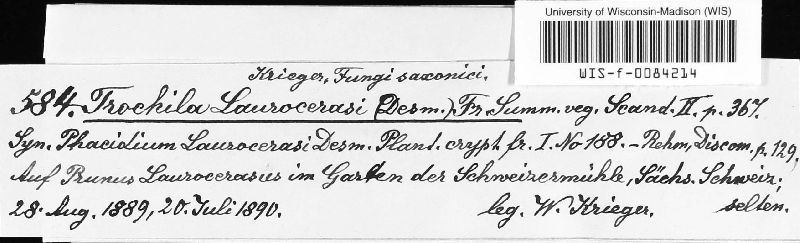 University of Wisconsin-Madison (WIS)
WIS-f-0084214
Krieger, Fungi saxonici.
584. Trochila Laurocerasi (Desm.) Fr. Summ. veg. Scand. II. p. 367.
Syn. Phacidium Laurocerasi Desm. Plant. crypt. fr. I. No 188. – Rehm, Discom. p. 129.
Auf Prunus Laurocerasus im Garten der Schweizermühle, Sächs. Schweiz;
28. Aug. 1889, 20. Juli 1890. leg. W. Krieger. selten.